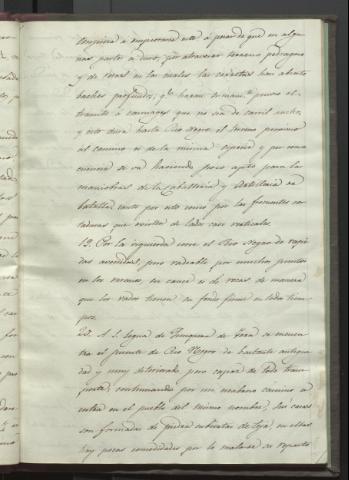 empieza á empeorarse está á pesar de que en algu-
nas partes es duro, por atravesar terreno pedregoso
y de rocas en las cuales las carretas han abierto
baches profundos, q.e hacen sumam.te penoso el
transito á carruages que no sean de carril ancho,
y esto dura hasta Rio negro. el terreno proximo
al camino es de la misma especie y por conse-
cuencia se va haciendo poco apto para las
maniobras de la Caballeria y Artilleria en
batalla tanto por esto como por las frecuentes cor-
taduras que existen de lados casi verticales.
19. Por la izquierda corre el Rio Negro de rapi-
das avenidas, pero vadeable por muchos puntos
en los veranos, su cauce es de rocas de manera
que los vados tienen su fondo firme en todo tiem-
po.
20. A 1 legua de de se encuen-
tra el puente de Rio Negro de bastante antigue-
dad y muy deteriorado pero capaz de todo trans-
porte, continuando por un mediano camino á
entrar en el pueblo del mismo nombre, sus casas
son formadas de piedra cubiertas de teja, en ellas
hay pocas comodidades por lo malo de su reparto